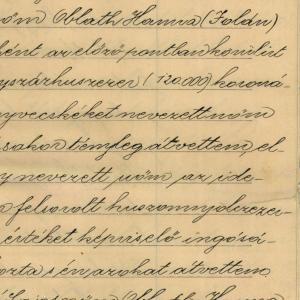 nőm Oblath Hanna (Jolán)
ként az előző pontban körülirt
yszázhuszezer (120.000) koroná-
nyvecskéket nevezett nőm
sakor tényleg átvettem, el-
y nevezett nőm az ide-
a felsorolt huszonnyolczezer
értéket képviselő ingósá-
hozta s én azokat átvettem